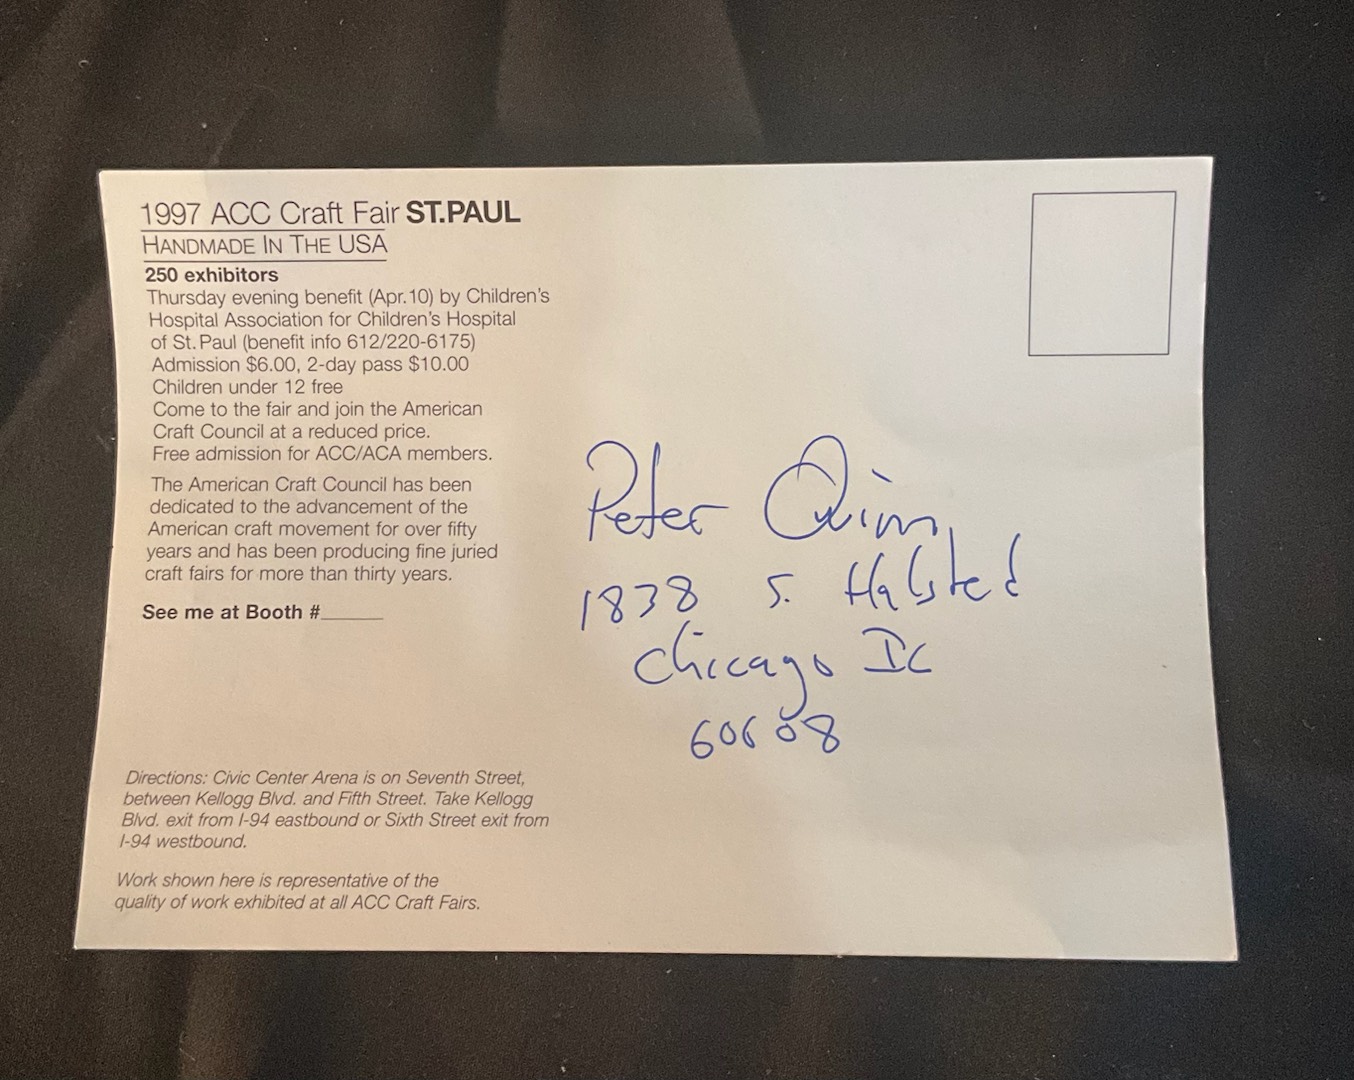 1997 ACC Craft Fair ST.PAUL
HANDMADE IN THE USA
250 exhibitors
Thursday evening benefit (Apr. 10) by Children's
Hospital Association for Children's Hospital
of St. Paul (benefit info 612/220-6175)
Admission $6.00, 2-day pass $10.00
Children under 12 free
Come to the fair and join the American
Craft Council at a reduced price.
Free admission for ACC/ACA members.
The American Craft Council has been
dedicated to the advancement of the
American craft movement for over fifty
years and has been producing fine juried
craft fairs for more than thirty years.
See me at Booth #______
Directions: Civic Center Arena is on Seventh Street,
between Kellogg Blvd. and Fifth Street. Take Kellogg
Blvd. exit from I-94 eastbound or Sixth Street exit from
I-94 westbound.
Work shown here is representative of the
quality of work exhibited at all ACC Craft Fairs.
Peter Quinn
1838 S. Halsted
Chicago IL
60608